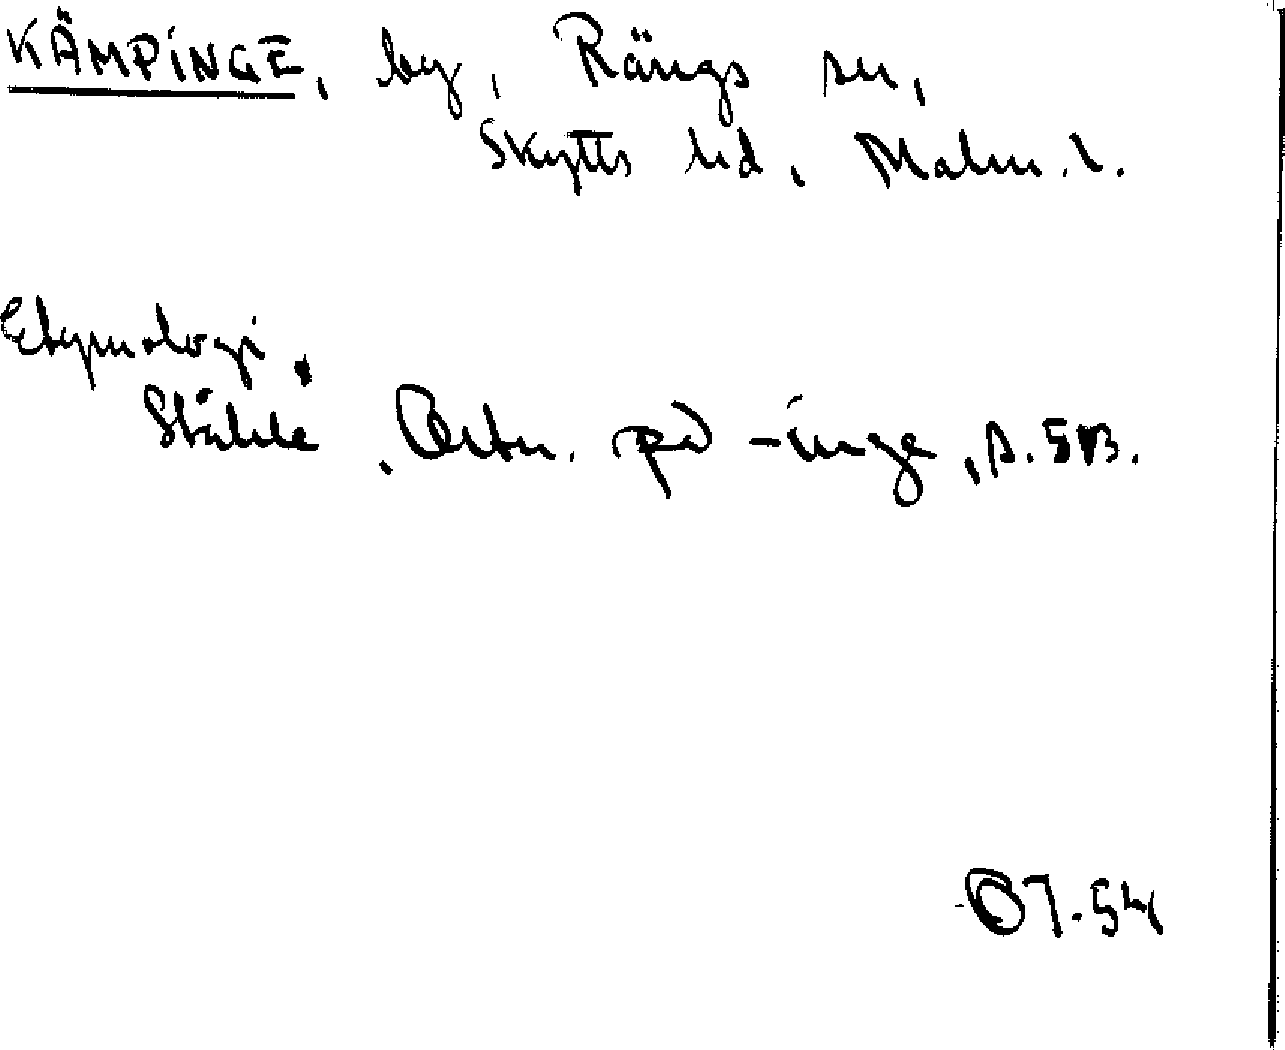 KÄMPINGE, by, Rängs sn,
Skytts hd, Malm. l.
Etymologi.
Ståhle, Ortn. på -inge, s.
OJ.54